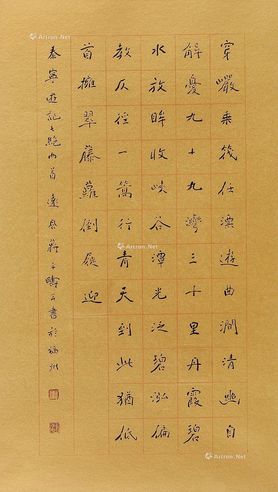 穿巖乘筏任漂遊曲澗清幽自
解憂九十九灣三十里丹霞碧
水放眸收峽谷潭光泛碧泓偏
教仄徑一篙行青天到此猶低
首擁翠藤蘿倒屐迎
泰寧遊記七絕內首 書於福州
Artron.Net
Artron.Net
Artron.Net